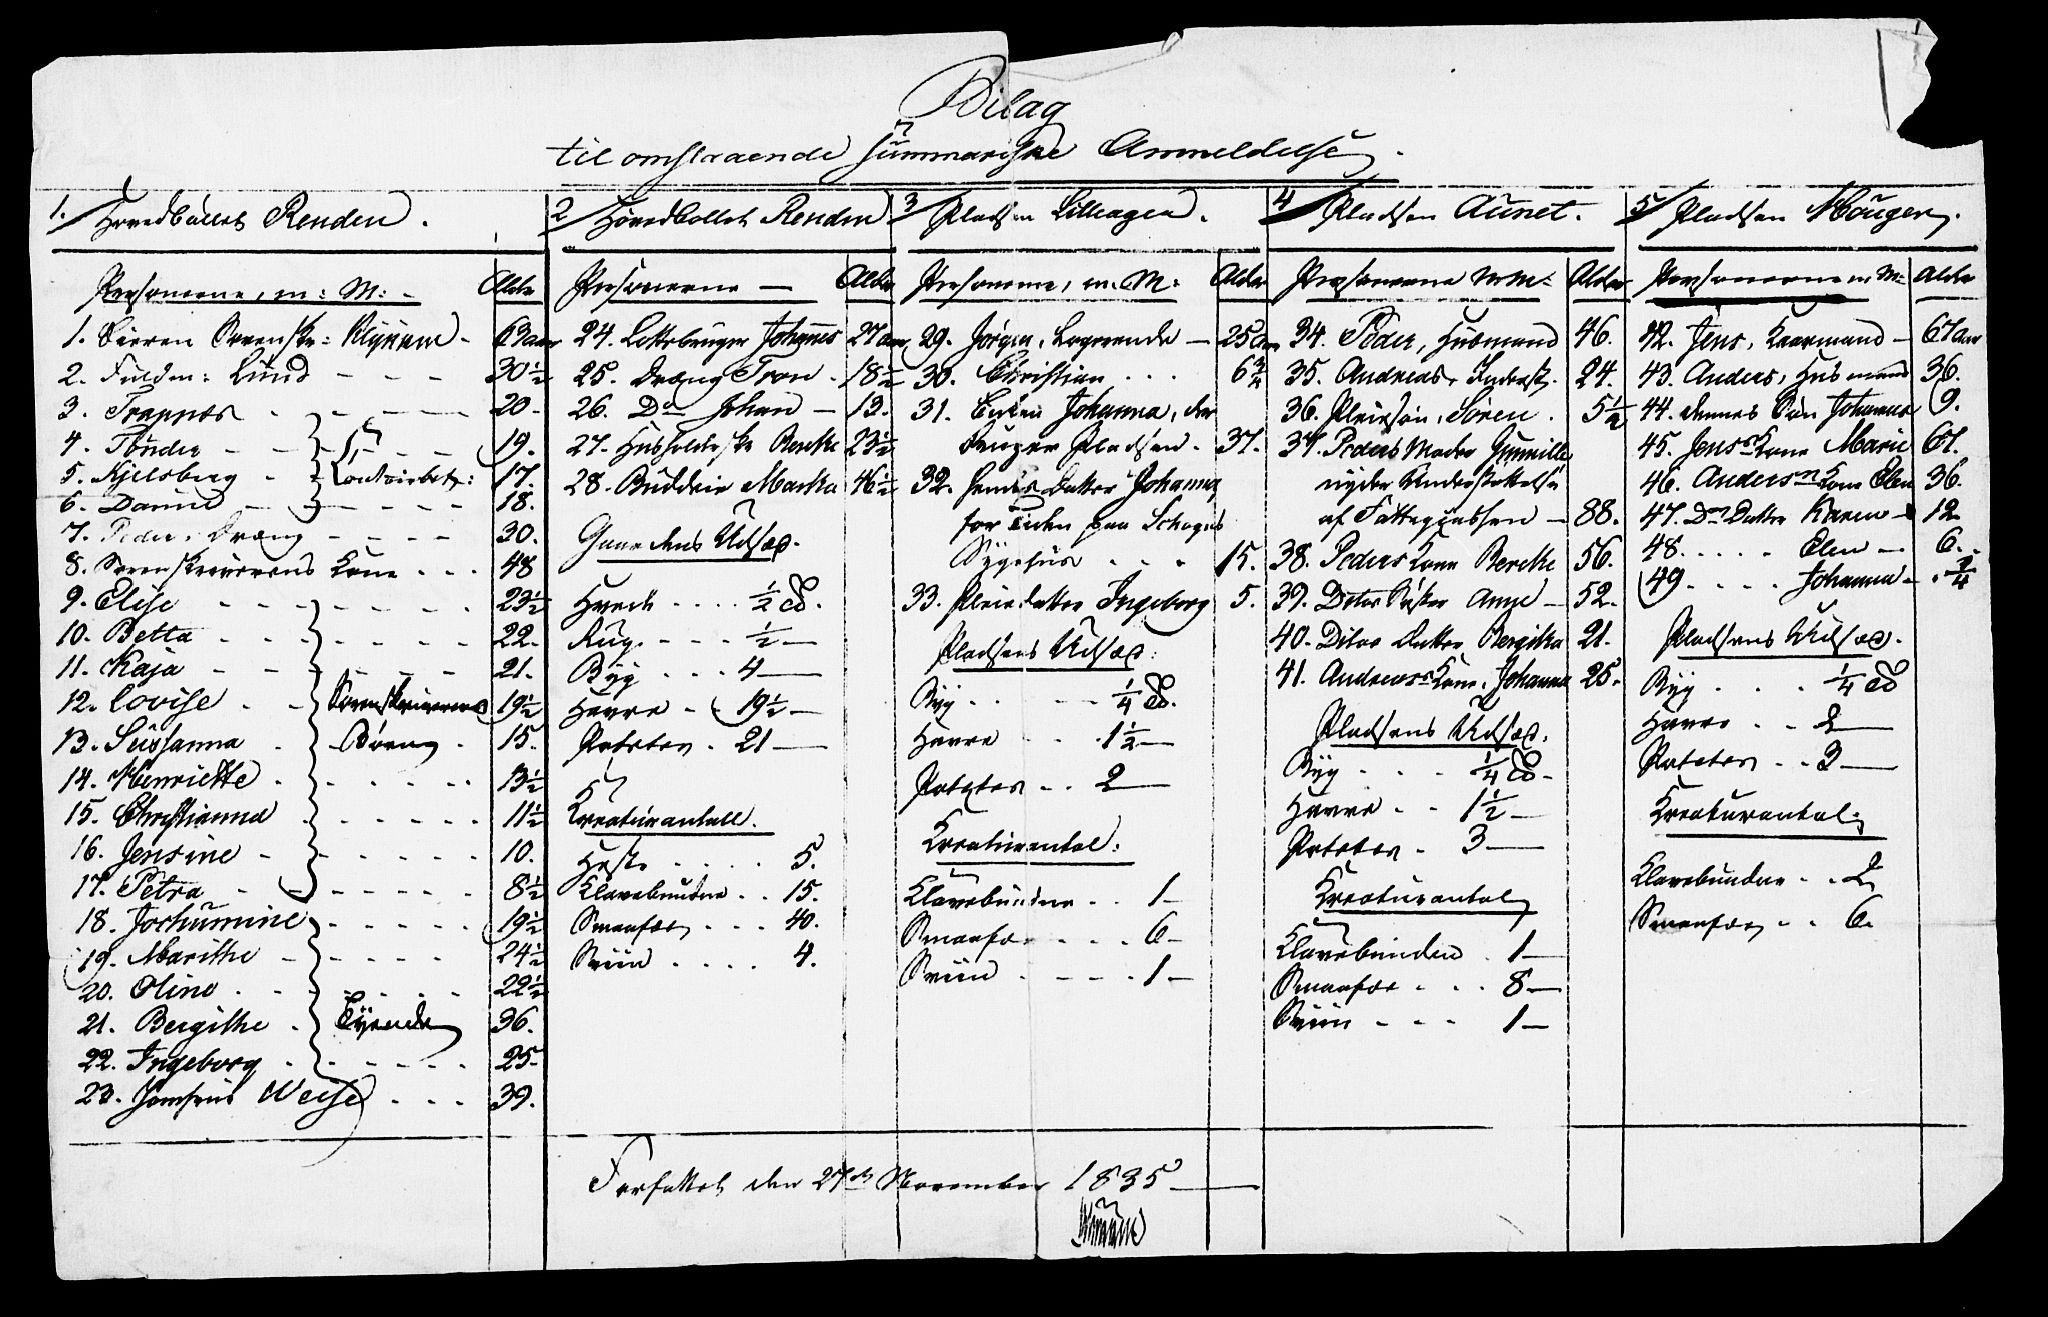 Bilag
til omstaaende summariske Anmeldelse.
1. Hovedbøllet Renden.
Personerne, m: M: - Alder
1. Sorenskr: - 63 aar
2. Fuldm: Lund - - - 30½
3. Trappes - - - 20-
4. Tønder - - - 19.
5. Kjelsberg - Contoirbetj: 17.
6. Darine - - - 18.
7. Peder, Dreng - - - 30.
8. Sorenskriverens Kone - - - 48
9. Elise - - - 23½
10. Betta - - - 22.
11. Kaja - - - 21.
12. Lovise - - Sorenskriverens 19½
13. Sussanna - Børn - 15.
14. Henriette - - - 13½
15. Christianna - - - 11½
16. Jensine - - - 10.
17. Petra - - - 8½
18. Jochumine - - - 19½
19. Marithe - - - 24½
20. Oline - - - 22½
21. Bergithe - Tyende 36.
22. Ingeborg - - - 25-
23. Jomfrue Weise - - - 39.
2 Hovedbøllet Renden
Personerne — Alder
24. Johannes 27 aar
25. Dreng Tron - 18½
26. Do Johan — 13.
27. Husholderske Berethe 23½
28. Buddeie Martha 46½
Gaardens Udsæd.
Hvede - - - ½ Td.
Rug - - - ½ —
Byg - - - 4 —
Havre - - 19½ —
Poteter - 21 —
Kreaturantall.
Heste - - - 5.
Klavebundne - - 15.
Smaafæe - - - 40.
Sviin - - - 4.
3 Pladsen Lilleagen.
Personerne, m. M: Alder
29. Jørgen, Logerende — 25 aar
30. Christian - - - 6¾
31. Enken Johanna, der
bruger Pladsen - 37.
32. hendes Datter Johanna,
for Tiden paa
Sygehus - - - 15.
33. Pleiedatter Ingeborg 5.
Pladsens Udsæd:
Byg - - - ¼ Td.
Havre - - 1½ —
Poteter - - 2 —
Kreaturantal:
Klavebundne - - 1 —
Smaafæe - - - 6 —
Sviin - - - 1 —
4 Pladsen Aunet.
Personerne m M: Alder
34. Peder, Husmand 46.
35. Andreas, Inderst, 24.
36. Pleiesøn, Søren - 5½
37. Peders Moder Gunnille
nyder Understøttelse
af Fattigkassen — 88.
38. Peders Kone Berethe 56.
39. Ditos Søster Anne — 52.
40. Ditos Datter Bergitha 21.
41. Andreass Kone, Johanna 25.
Pladsens Udsæd.
Byg - - - ¼ Td.
Havre - - 1½ —
Poteter - 3 —
Kreaturantal
Klavebunden - 1 —
Smaafæe - - - 8 —
Sviin - - - 1 —
5 Pladsen Houger.
Personerne m M: Alder
42. Jens, Kaarmand — 67 aar
43. Anders, Husmand 36.
44. dennes Søn Johannes 9.
45. Jens's Kone Marie 67.
46. Anders's Kone Elen 36.
47. Ds Datter Karen — 12
48. - - - Elen — 6.
49 - - - Johanna - ¾
Pladsens Udsæd.
Byg - - - ¼ Td
Havre - - 2 —
Poteter - - 3 —
Kreaturantal:
Klavebundne - - 2
Smaafæe - - 6.
Forfattet den 27de November 1835 —